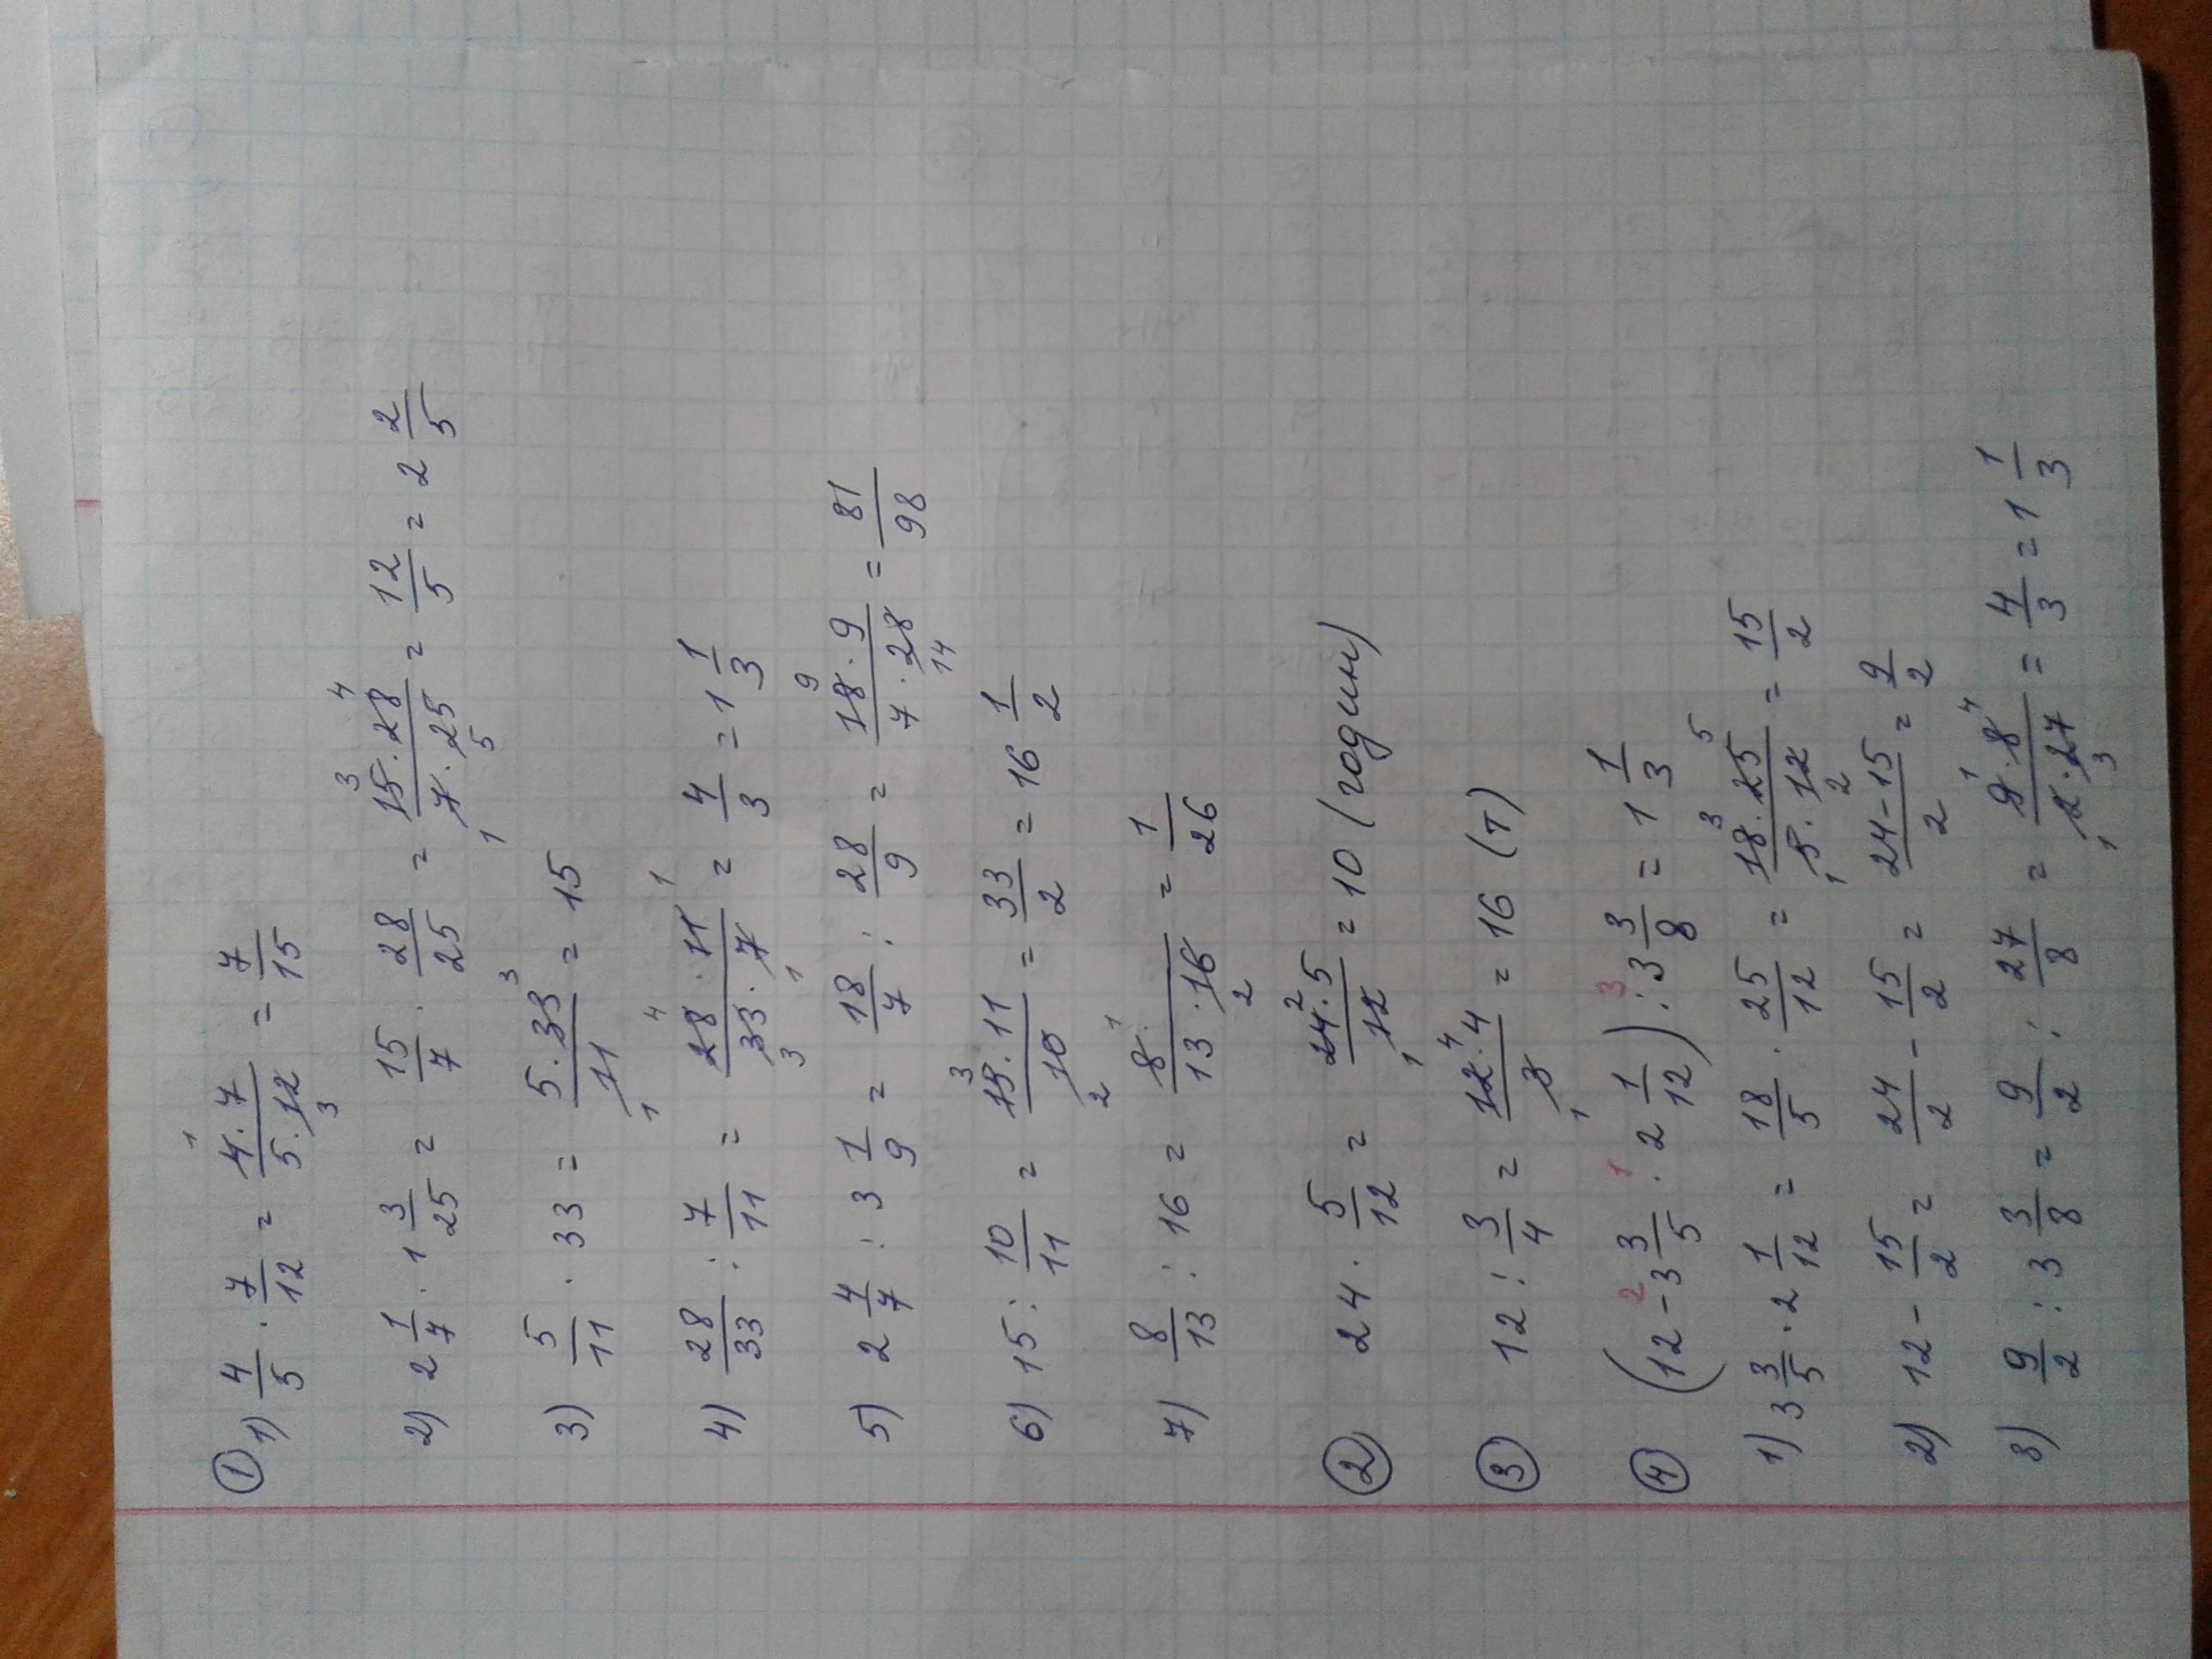 ① 1) 4/5 · 7/12 = 4·7/5·12 1 3 = 7/15
2) 2 1/7 · 1 3/25 = 15/7 · 28/25 = 15·28/7·25 3 4 1 5 = 12/5 = 2 2/5
3) 5/11 · 33 = 5·33/11 3 1 = 15
4) 28/33 : 7/11 = 28·11/33·7 4 1 3 1 = 4/3 = 1 1/3
5) 2 4/7 : 3 1/9 = 18/7 : 28/9 = 18·9/7·28 9 14 = 81/98
6) 15 : 10/11 = 15·11/10 3 2 = 33/2 = 16 1/2
7) 8/13 : 16 = 8·/13·16 1 2 = 1/26
② 24 · 5/12 = 24·5/12 2 1 = 10 (годин)
③ 12 : 3/4 = 12·4/3 4 1 = 16 (т)
④ (12 - 3 3/5 · 2 1/12) : 3 3/8 = 1 1/3 2 1 3
1) 3 3/5 · 2 1/12 = 18/5 · 25/12 = 18·25/5·12 3 5 1 2 = 15/2
2) 12 - 15/2 = 24/2 - 15/2 = 24-15/2 = 9/2
3) 9/2 : 3 3/8 = 9/2 : 27/8 = 9·8/2·27 1 4 1 3 = 4/3 = 1 1/3